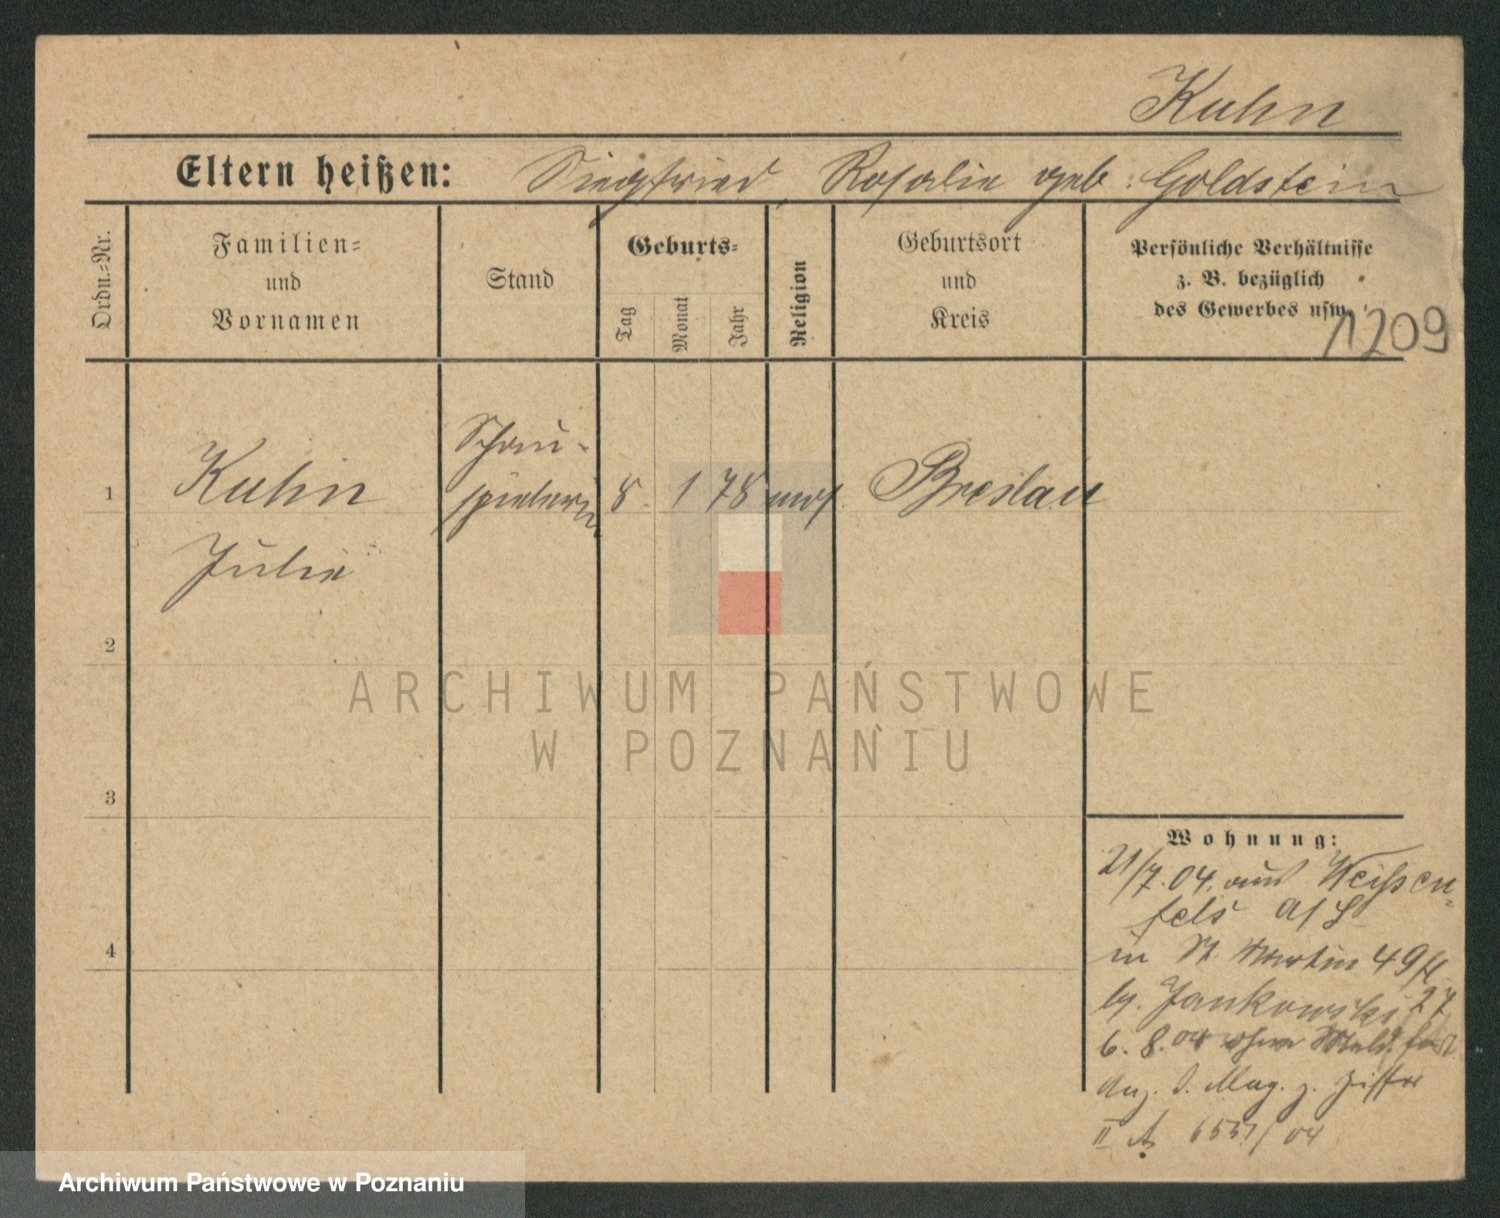 Kuhn
Eltern heißen: Siegfried, Rosalie geb. Goldstein
Ordn.=Nr.
Familien=
und
Vornamen
Stand
Geburts=
Tag
Monat
Jahr
Religion
Geburtsort
und
Kreis
Persönliche Verhältnisse
z. B. bezüglich
des Gewerbes usw.
1209
1
Kuhn
Julie
Schau-
spielerin
8. 1 78 mos.
Breslau
2
3
4
Wohnung:
21/7.04. aus Weißen-
fels a/S
in St. Martin 49
b. Jankowski 27
6. 8. 04 ohne Meld. fort
Anz. d. Mag. z. Ziffer
II A 6551/04
ARCHIWUM PAŃSTWOWE
W POZNANIU
Archiwum Państwowe w Poznaniu